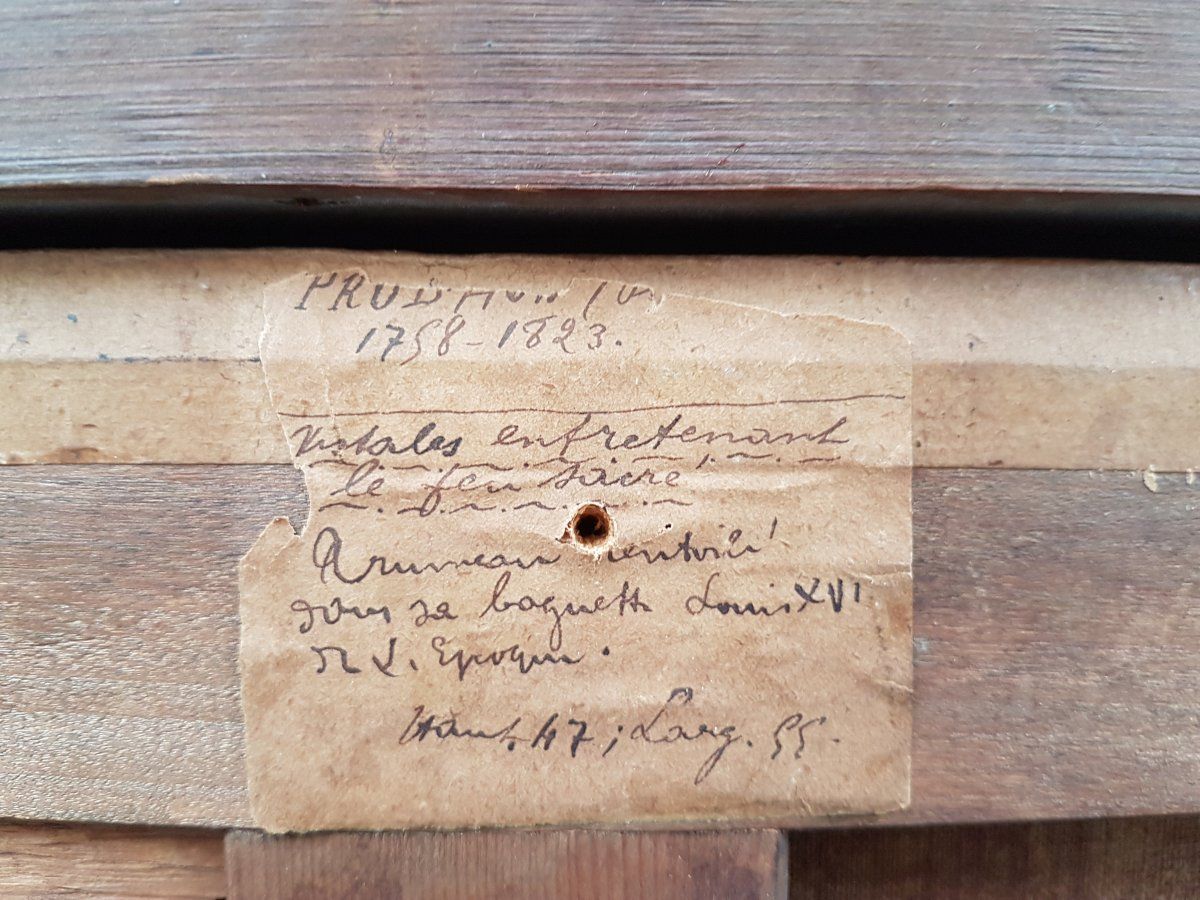 PRUD'HON
1758-1823.
Vestales entretenant
le feu sacré
rentoilé
dans sa baguette Louis XVI
de l'Epoque.
Haut. 47 ; Larg. 55.